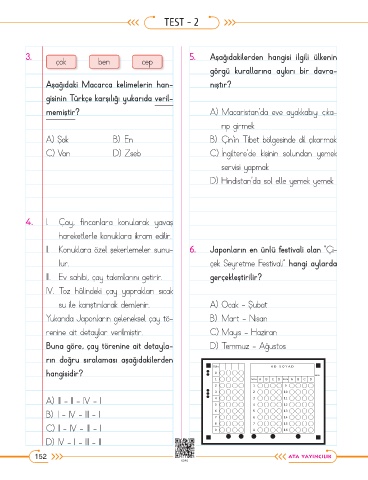 TEST - 2
3.
çok ben cep
Aşağıdaki Macarca kelimelerin han-
gisinin Türkçe karşılığı yukarıda veril-
memiştir?
A) Sok B) En
C) Van D) Zseb
4. I. Çay, fincanlara konularak yavaş
hareketlerle konuklara ikram edilir.
II. Konuklara özel şekerlemeler sunu-
lur.
III. Ev sahibi, çay takımlarını getirir.
IV. Toz hâlindeki çay yaprakları sıcak
su ile karıştırılarak demlenir.
Yukarıda Japonların geleneksel çay tö-
renine ait detaylar verilmiştir.
Buna göre, çay törenine ait detayla-
rın doğru sıralaması aşağıdakilerden
hangisidir?
A) III - II - IV - I
B) I - IV - III - II
C) II - IV - III - I
D) IV - I - III - II
5. Aşağıdakilerden hangisi ilgili ülkenin
görgü kurallarına aykırı bir davra-
nıştır?
A) Macaristan'da eve ayakkabıyı çıka-
rıp girmek
B) Çin'in Tibet bölgesinde dil çıkarmak
C) İngiltere'de kişinin solundan yemek
servisi yapmak
D) Hindistan'da sol elle yemek yemek
6. Japonların en ünlü festivali olan "Çi-
çek Seyretme Festivali" hangi aylarda
gerçekleştirilir?
A) Ocak - Şubat
B) Mart - Nisan
C) Mayıs - Haziran
D) Temmuz - Ağustos
AD SOYAD
152
ATA YAYINCILIK